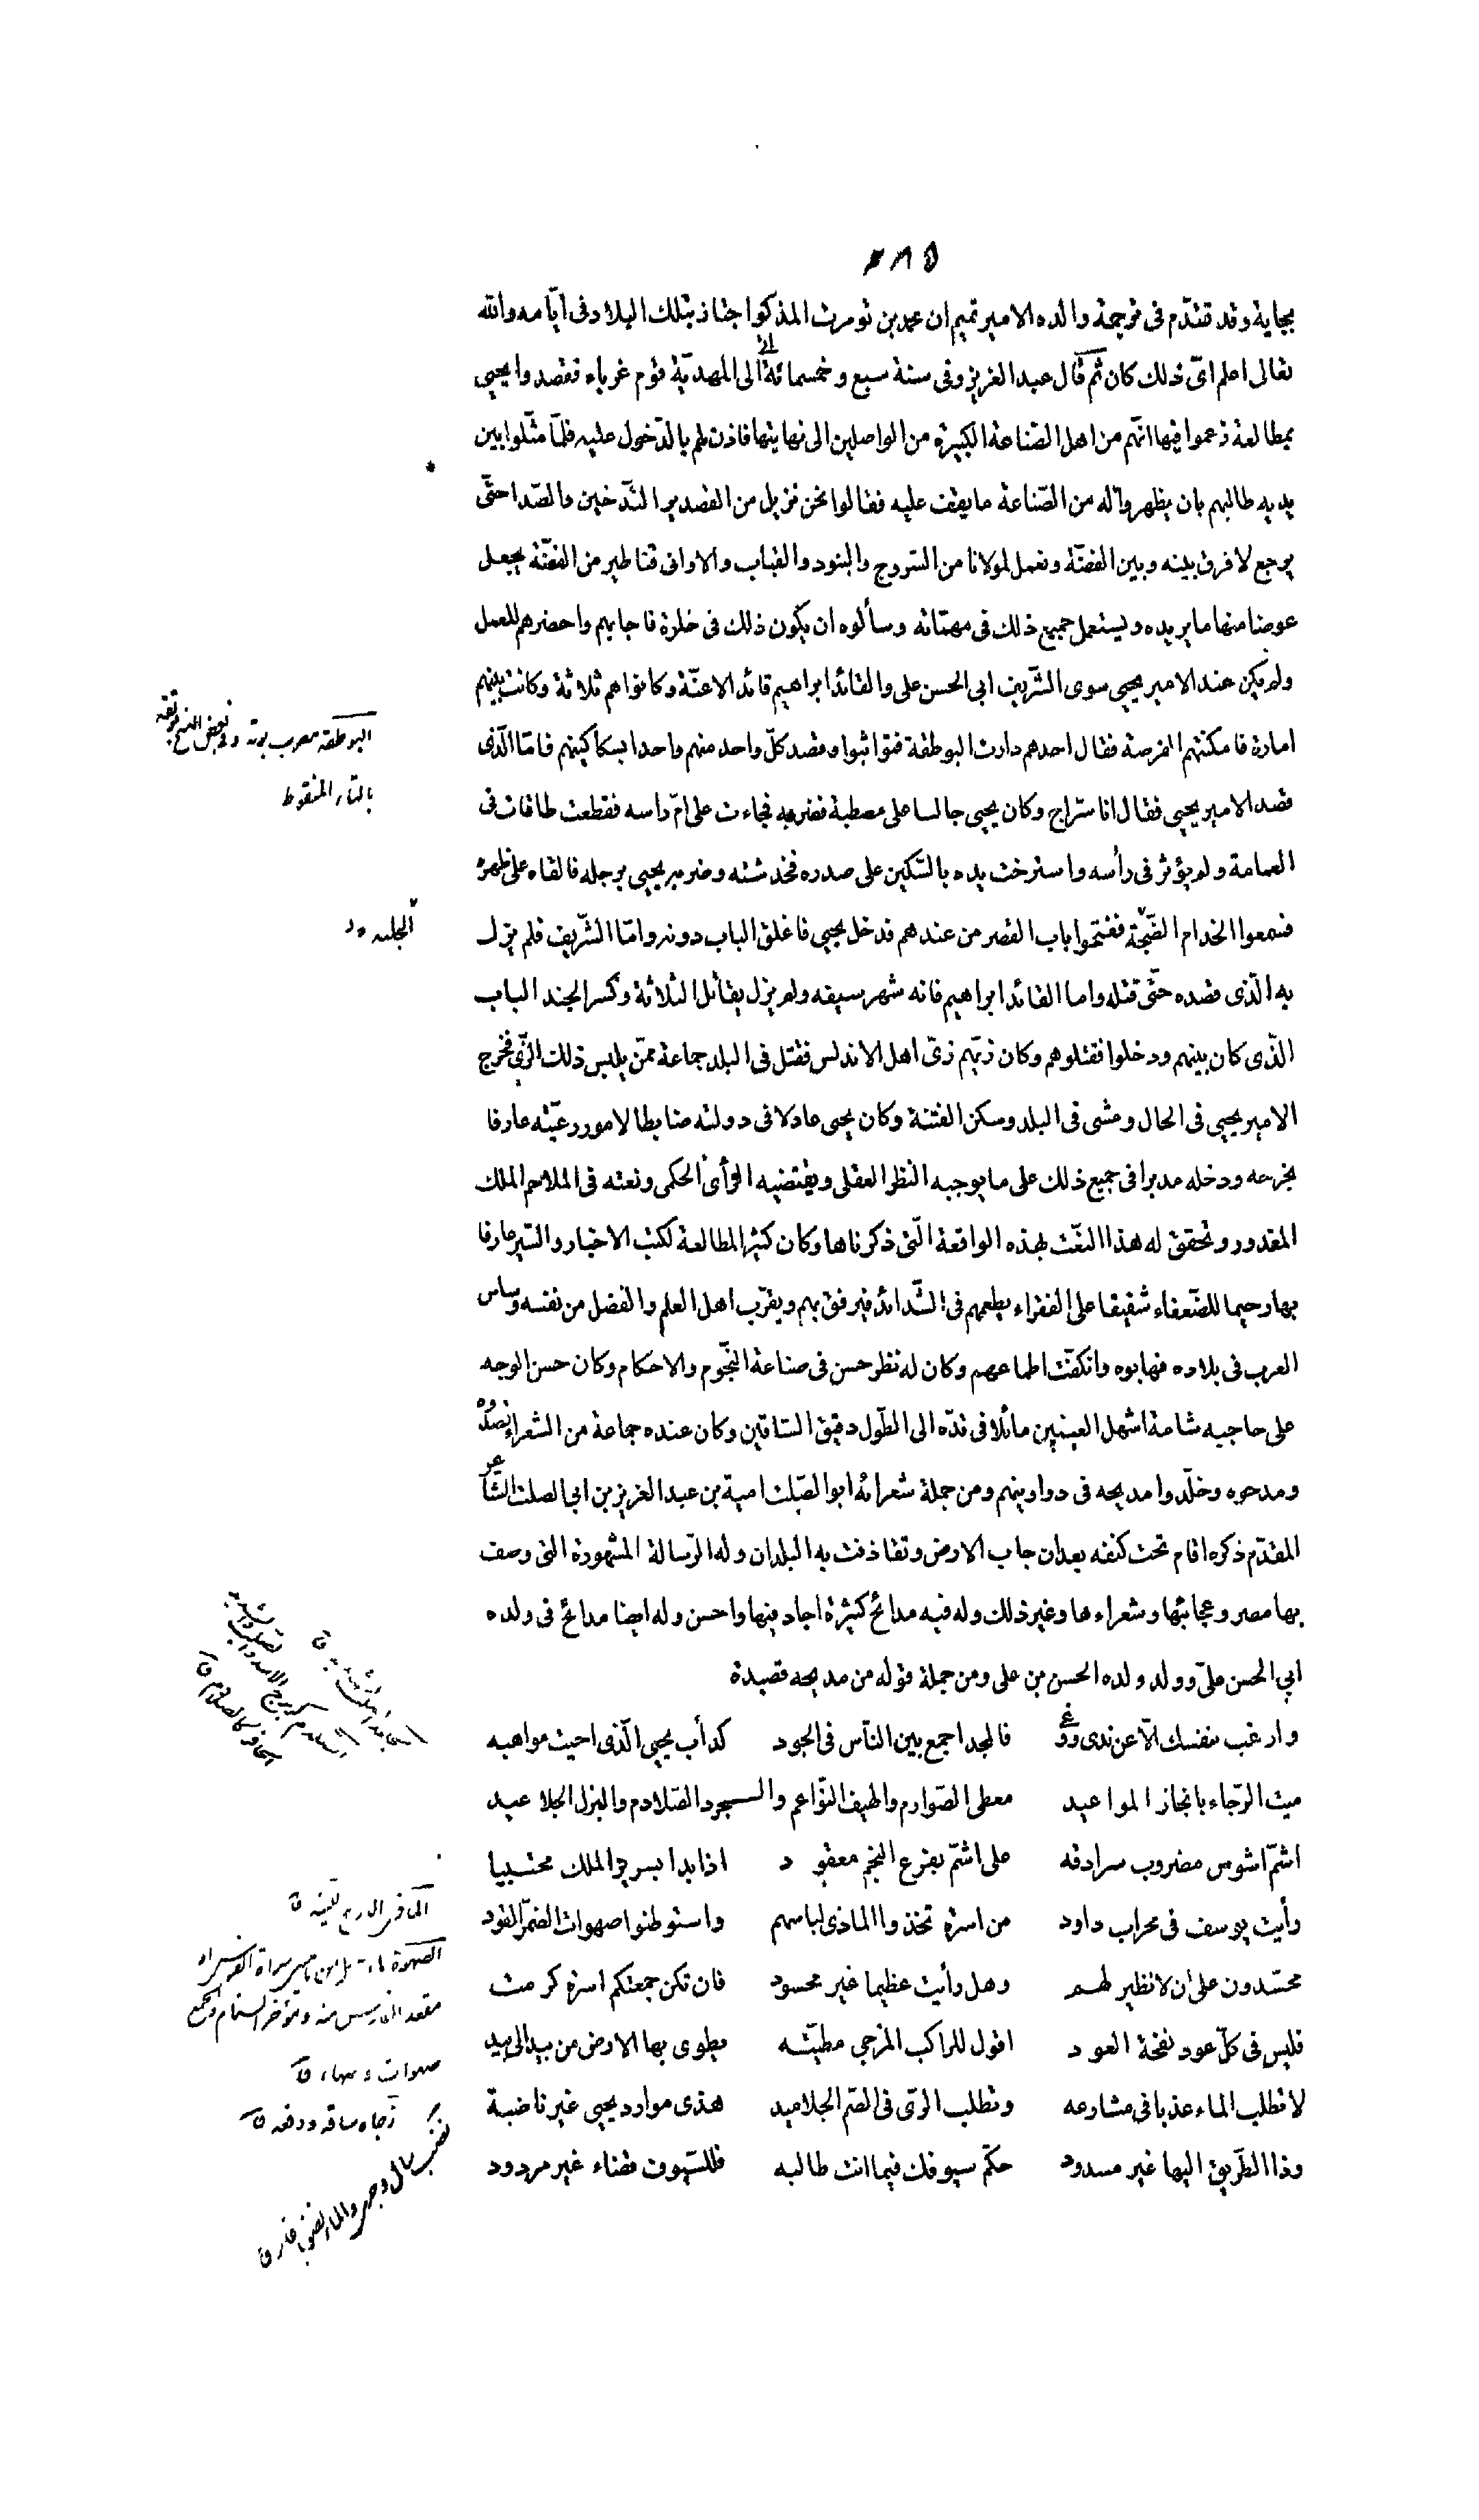 ٢٨٥
بجاية وقد تقدّم فى ترجمة والده الامير تميم ان محمد بن تومرت المذكور اجتاز بتلك البلاد فى ايّامه والله
تعالى اعلم اىّ ذلك كان ثم قال عبد العزيز وفى سنة سبع وخمسمائة اتى الى المهديّة قوم غرباء فقصدوا يحيى
بمطالعة زعموا فيها انّهم من اهل الصّناعة الكبيرة من الواصلين الى نهايتها فاذن لهم بالدّخول عليه فلمّا مثّلوا بين
يديه طالبهم بان يظهروا له من الصّناعة ما يقف عليه فقالوا نحن نزيل من القصدير التّدخين والصّدا حتّى
يرجع لا فرق بينه وبين الفضّة ونعمل لمولانا من السّروج والبنود والقباب والاوانى قناطير من الفضّة يجعل
عوضا منها ما يريده ويستعمل جميع ذلك فى مهمّاته وسألوه ان يكون ذلك فى خلوة فاجابهم واحضرهم للعمل
ولم يكن عند الامير يحيى سوى الشّريف ابى الحسن على والقائد ابراهيم قائد الاعنّة وكانوا هم ثلاثة وكانت بينهم
امارة فامكنتهم الفرصة فقال احدهم دارت البوطقة فتواثبوا وقصد كلّ واحد منهم واحدا بسكاكينهم فامّا الّذى
قصد الامير يحيى فقال انا سّراج وكان يحيى جالسا على مصطبة فضربه فجاءت على امّ راسه فقطعت طاقات فى
العمامة ولم يؤثر فى رأسه واسترخت يده بالسّكين على صدره فخدشته وضربه يحيى برجله فالقاه على ظهره
فسمعوا الخدام الضّجّة ففتحوا باب القصر من عندهم فدخل يحيى فاغلق الباب دونه وامّا الشّريف فلم يزل
به الّذى قصده حتّى قتله واما القائد ابراهيم فانه شهر سيفه ولم يزل يقاتل الثلاثة وكسر الجند الباب
الذّى كان بينهم ودخلوا فقتلوهم وكان زيّهم زىّ اهل الاندلس فقتل فى البلد جماعة ممّن يلبس ذلك الزّىّ فخرج
الامير يحيى فى الحال ومشى فى البلد وسكن الفتنة وكان يحيى عادلا فى دولته ضابطا لامور رعيّته عارفا
بخرجه ودخله مدبرا فى جميع ذلك على ما يوجبه النظر العقلى ويقتضيه الرّأى الحكمى ونعته فى الملاحم الملك
المغدور وتحقق له هذا النعّت بهذه الواقعة الّتى ذكرناها وكان كثير المطالعة لكتب الاخبار والسّير عارفا
بها رحيما للضّعفاء شفيقا على الفقراء يطعمهم فى الشّدائد فيرفق بهم ويقرّب اهل العلم والفضل من نفسه وساس
العرب فى بلاده فهابوه وانكفّت اطماعهم وكان له نظر حسن فى صناعة النّجّوم والاحكام وكان حسن الوجه
على حاجبه شامة اشهل العينين مائلا فى قدّه الى الطّول دقيق السّاقين وكان عنده جماعة من الشعراء قصدوه
ومدحوه وخلّدوا مديحه فى دواوينهم ومن جملة شعرائه ابو الصّلت امية بن عبد العزيز بن ابى الصلت الشّاعر
المقدّم ذكره اقام تحت كنفه بعد ان جاب الارض وتقاذفت به البلدان وله الرّسالة المشهورة التى وصف
بها مصر وعجائبها وشعراءها وغير ذلك وله فيه مدائح كثيرة اجاد فيها واحسن وله ايضا مدائح فى ولده
ابى الحسن علىّ وولد ولده الحسن بن على ومن جملة قوله من مديحه قصيدة
وارغب بنفسك الّا عن ندى ووغى فالمجد اجمع بين النّاس فى الجود كدأب يحيى الّذى احيت مواهبه
ميت الرّجاء بانجاز المواعيد معطى الصّوارم والهيف النّواعم والجرد الصّلادم والبزل الجلاعيد
اشمّ اشوس مضروب سرادقه على اشمّ بفرع النجم معقود اذا بدا بسرير الملك محتبيا
رأيت يوسف فى محراب داود من اسرة تخذوا الماذى لباسهم واستوطنوا صهوات الضمّر القود
محسّدون على ان لا نظير لهم وهل رأيت عظيما غير محسود فان تكن جمعتكم اسرة كرمت
فليس فى كلّ عود نفحة العود اقول للراكب المزجى مطيّته يطوى بها الارض من بيد الى بيد
لا تطلب الماء عذبا فى مشارعه وتطلب الرّى فى الصّم الجلاميد هذى موارد يحيى غير ناضبة
وذا الطّريق اليها غير مسدود حكّم سيوفك فيما انت طالبه فللسّيوف قضاء غير مردود
البوطقة معرب بوته وفى بعض النسخ
بالتاء المنقوط
الجلبه
صهوات